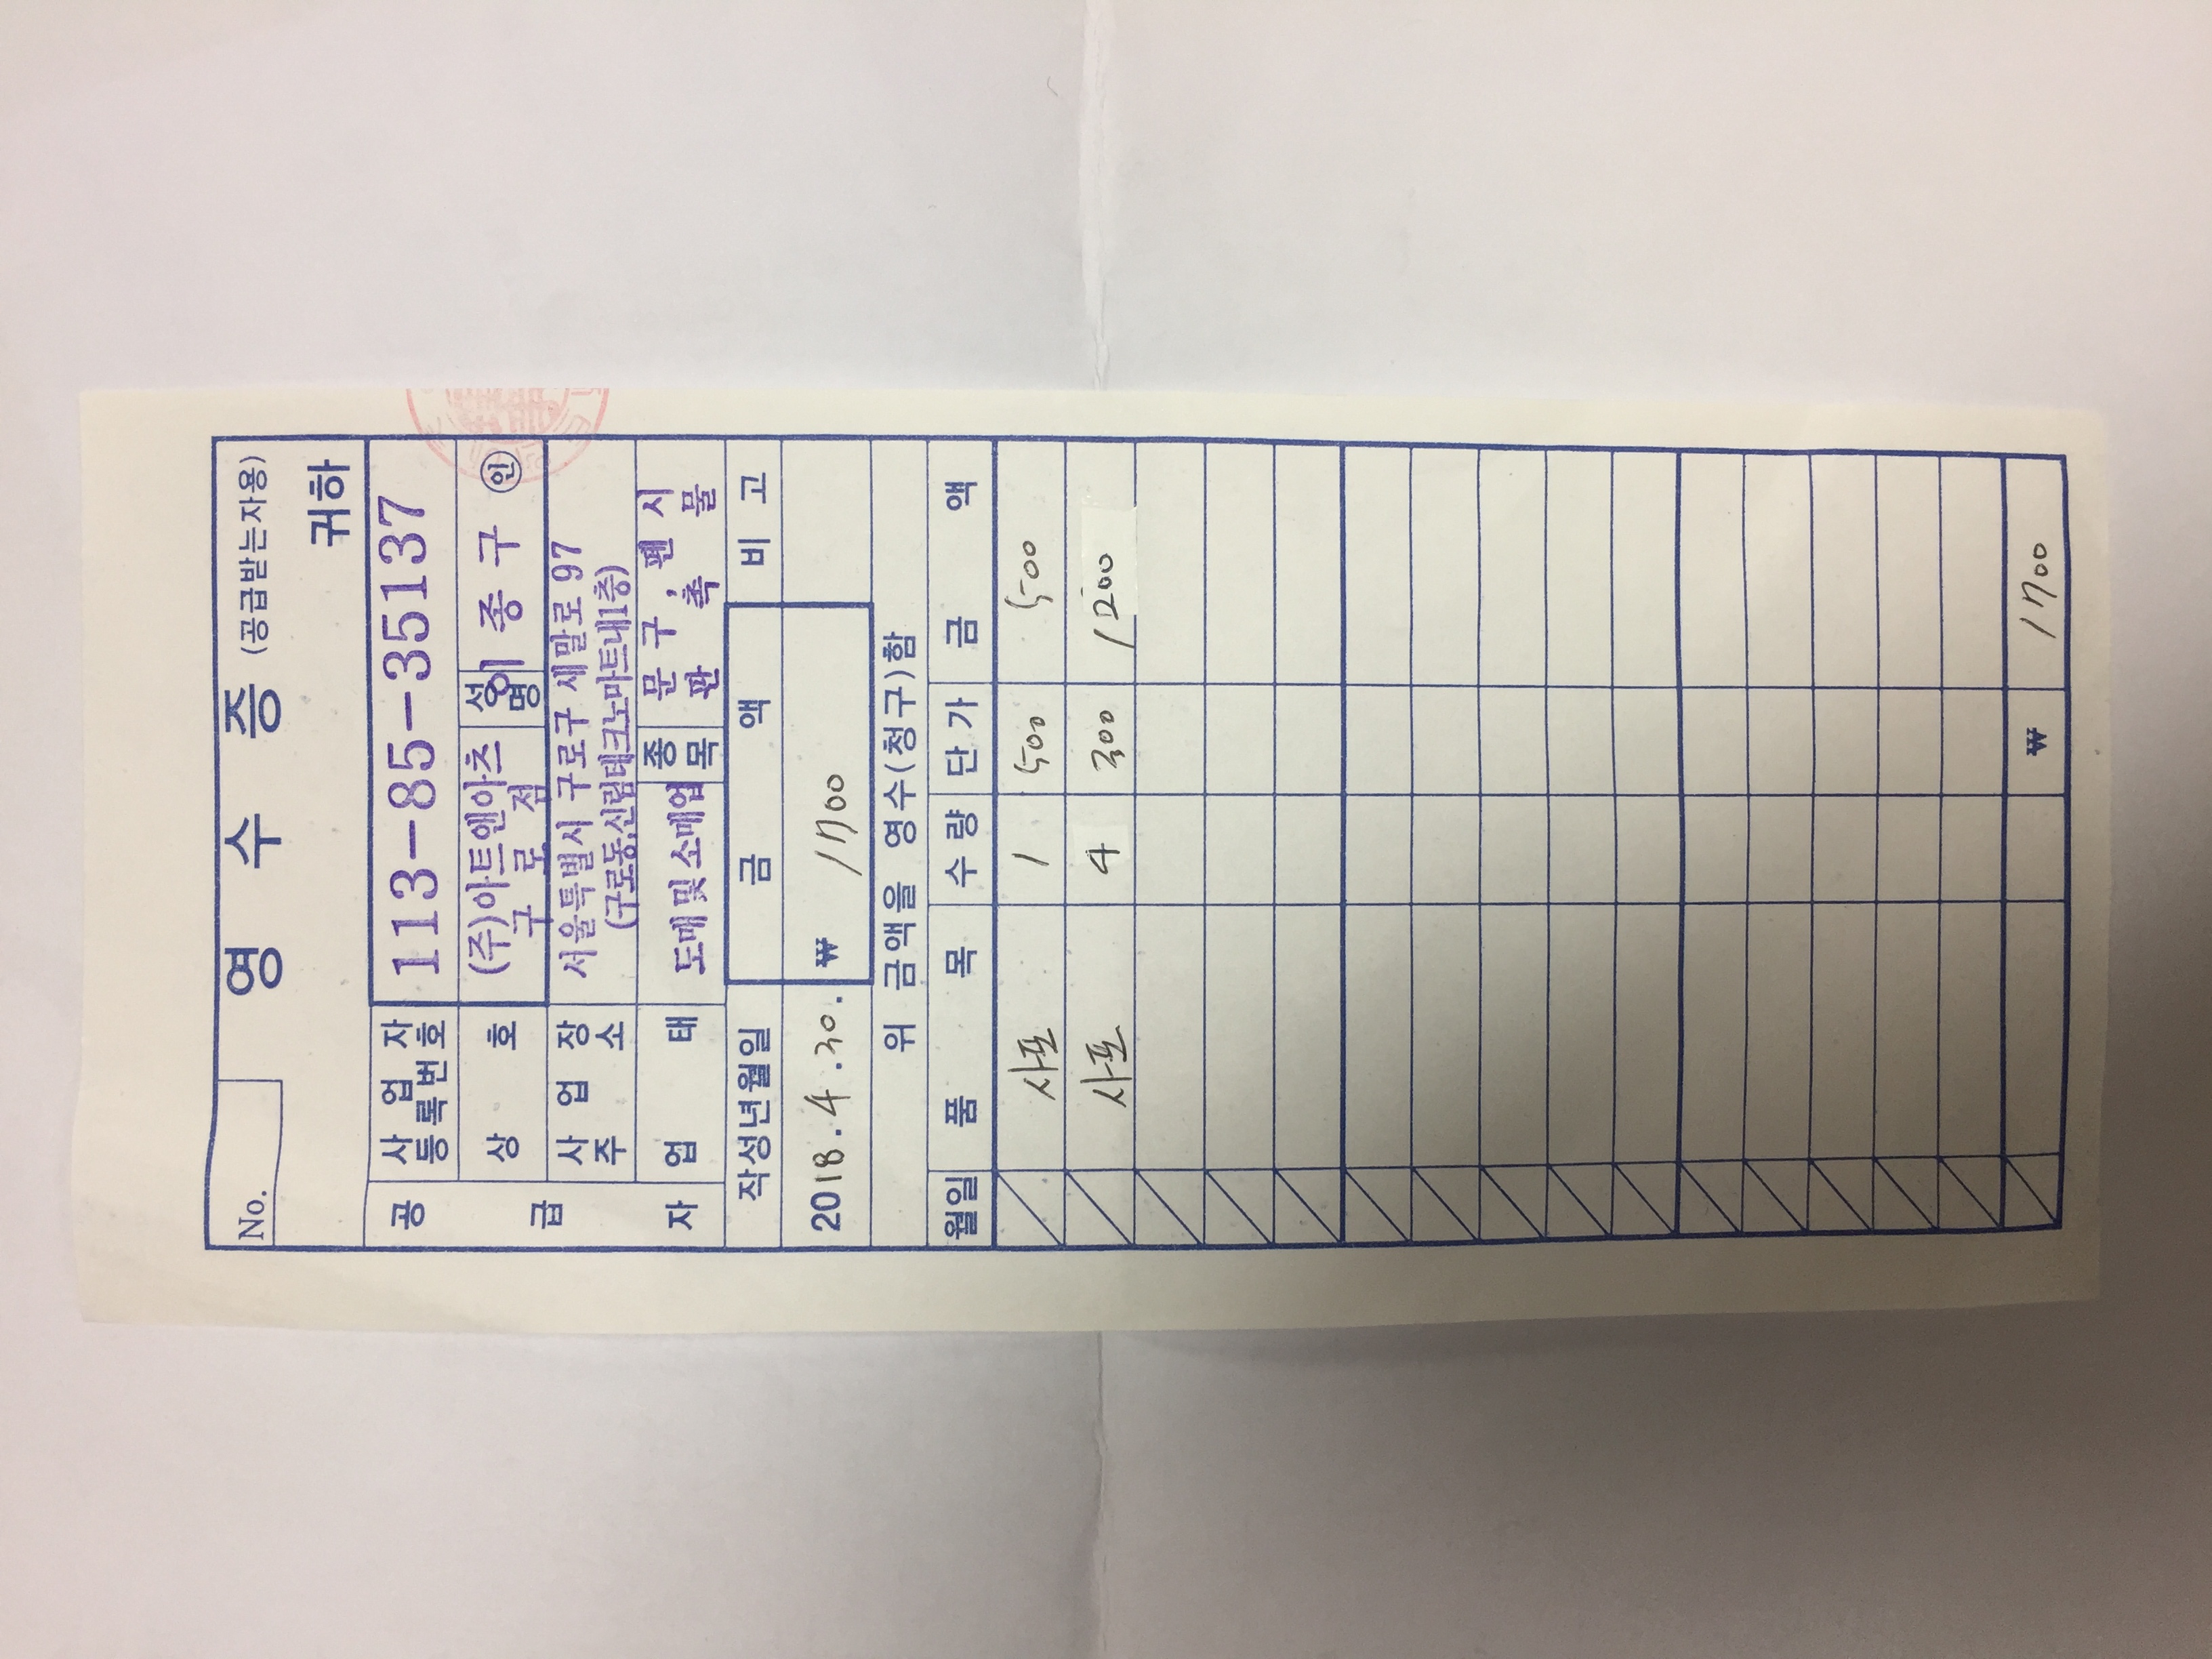 No. 영 수 증 (공급받는자용)
귀하
공급자
사업자등록번호 113-85-35137
상호 (주)아트앤아츠 구로점 성명 이종구 인
사업장주소 서울특별시 구로구 새말로 97
(구로동,신림테크노마트내1층)
업태 도매 및 소매업 종목 문구, 펜시 판촉물
작성년월일 금액 비고
2018.4.30. ₩ 1700
위 금액을 영수(청구)함
월일 품목 수량 단가 금액
사포 1 500 500
사포 4 300 1200
₩ 1700